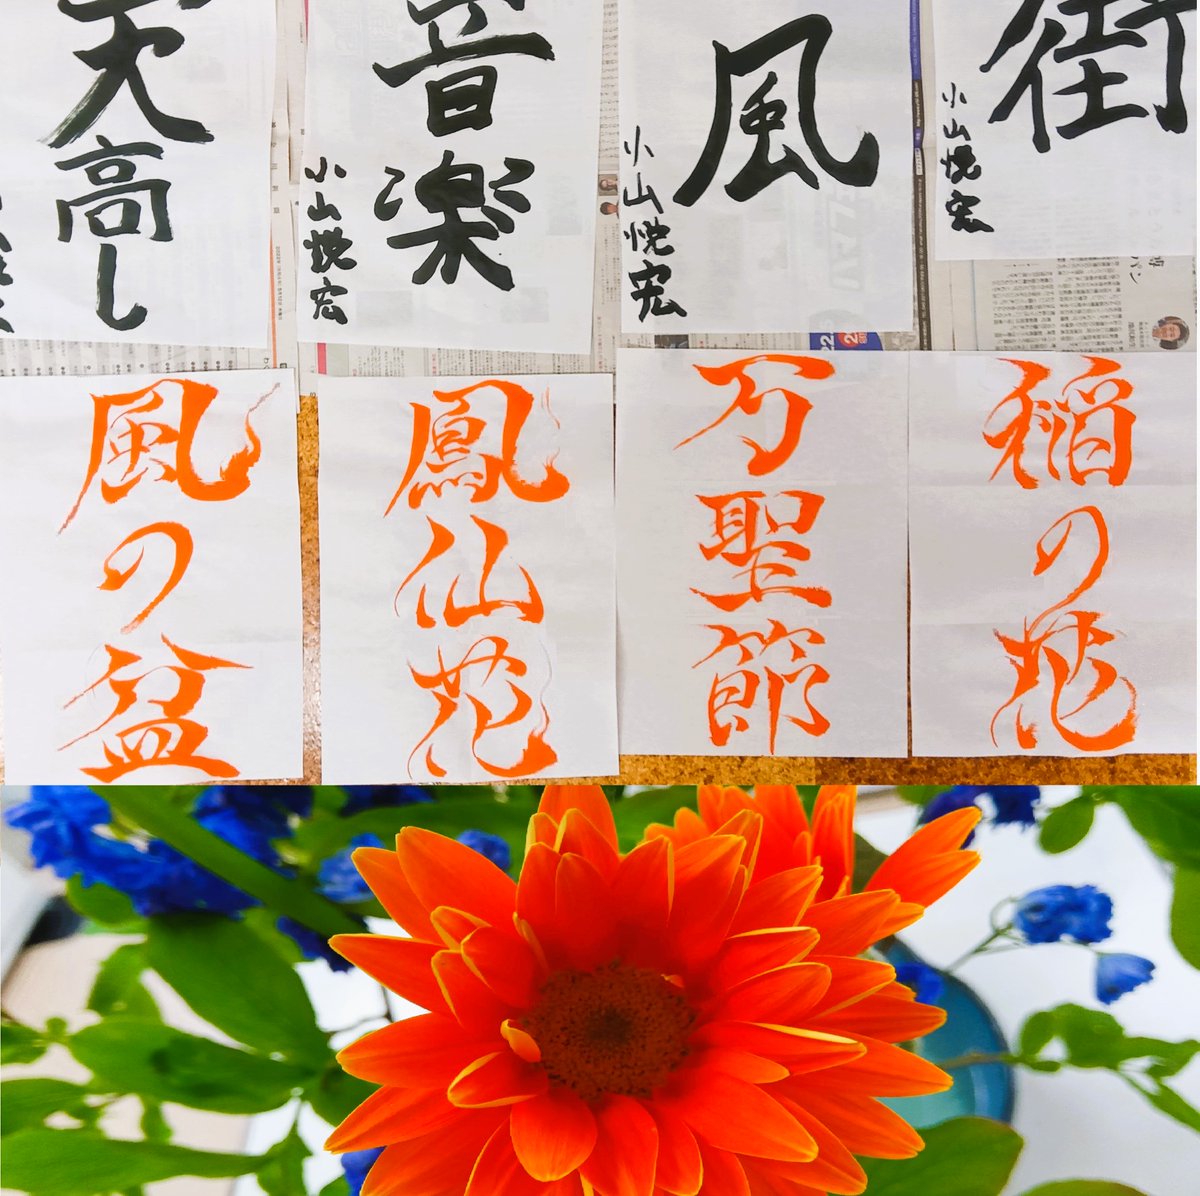 天高し
音楽
小山悦宏
風
小山悦宏
街
小山悦宏
風の盆
鳳仙花
万聖節
稲の花